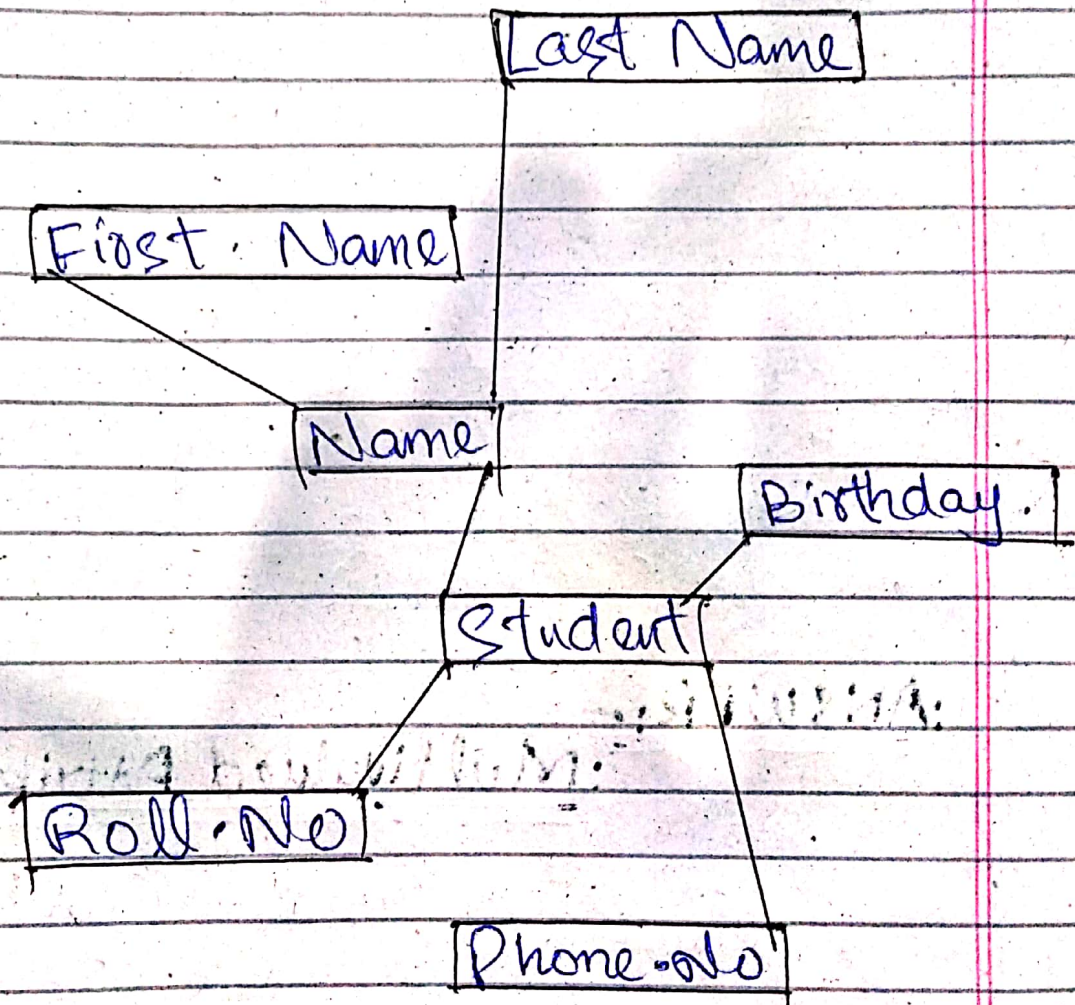 Last Name
First. Name
Name
Birthday.
Student
Roll.No
Phone.No